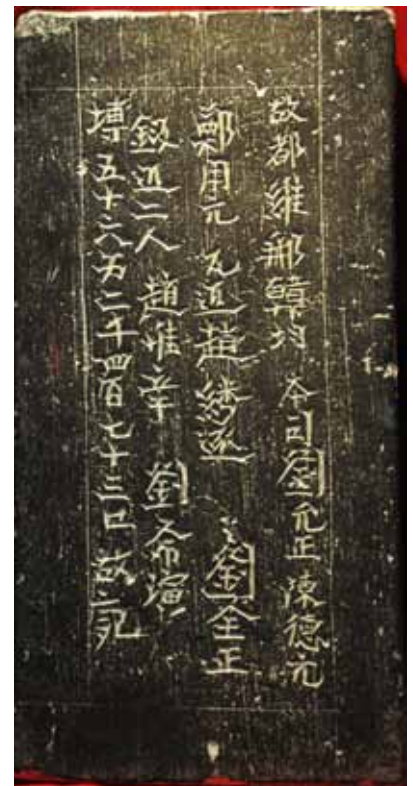 故都維那韓均 本司劉允正 陳德元
鄭用元 瓦匠趙遂 劉全正
釼匠二人 趙惟幸 劉希演
塼五十六万二千四百七十三口 故記